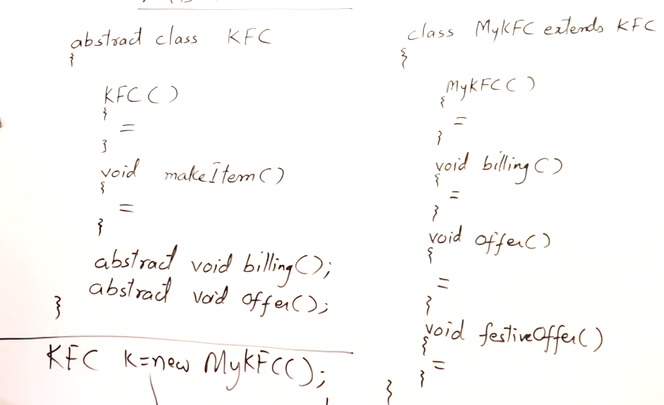 abstract class KFC
{
KFC()
{
=
}
void makeItem()
{
=
}
abstract void billing();
abstract void offer();
}
KFC k=new MyKFC();
class MyKFC extends KFC
{
MyKFC()
{
=
}
void billing()
{
=
}
void offer()
{
=
}
void festiveOffer()
{
=
}
}